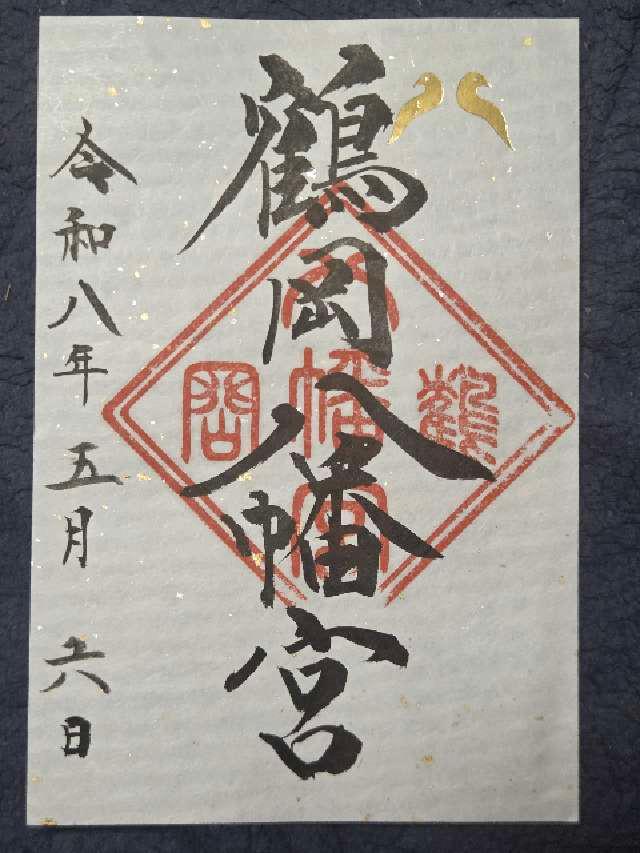 鶴岡八幡宮
鶴岡八幡宮
令和八年五月六日